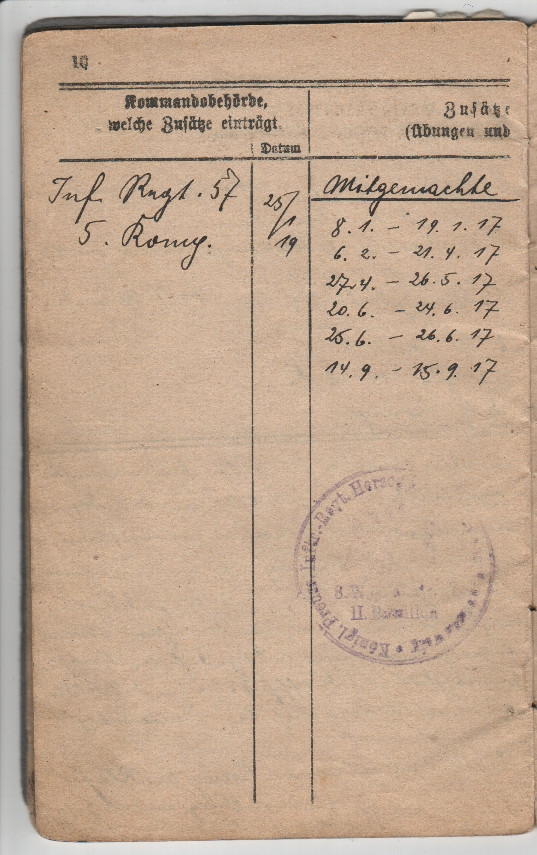 10
Kommandobehörde,
welche Zusätze einträgt.
Datum
Zusätze
(Übungen und
Inf. Regt. 57
5. Komp.
25/
1
19
Mitgemachte
8. 1. – 19. 1. 17
6. 2. – 21. 4. 17
27. 4. – 26. 5. 17
20. 6. – 24. 6. 17
25. 6. – 26. 6. 17
14. 9. – 15. 9. 17
Königl. Preuss. Inftr.-Regt. Herzog
II. Bataillon